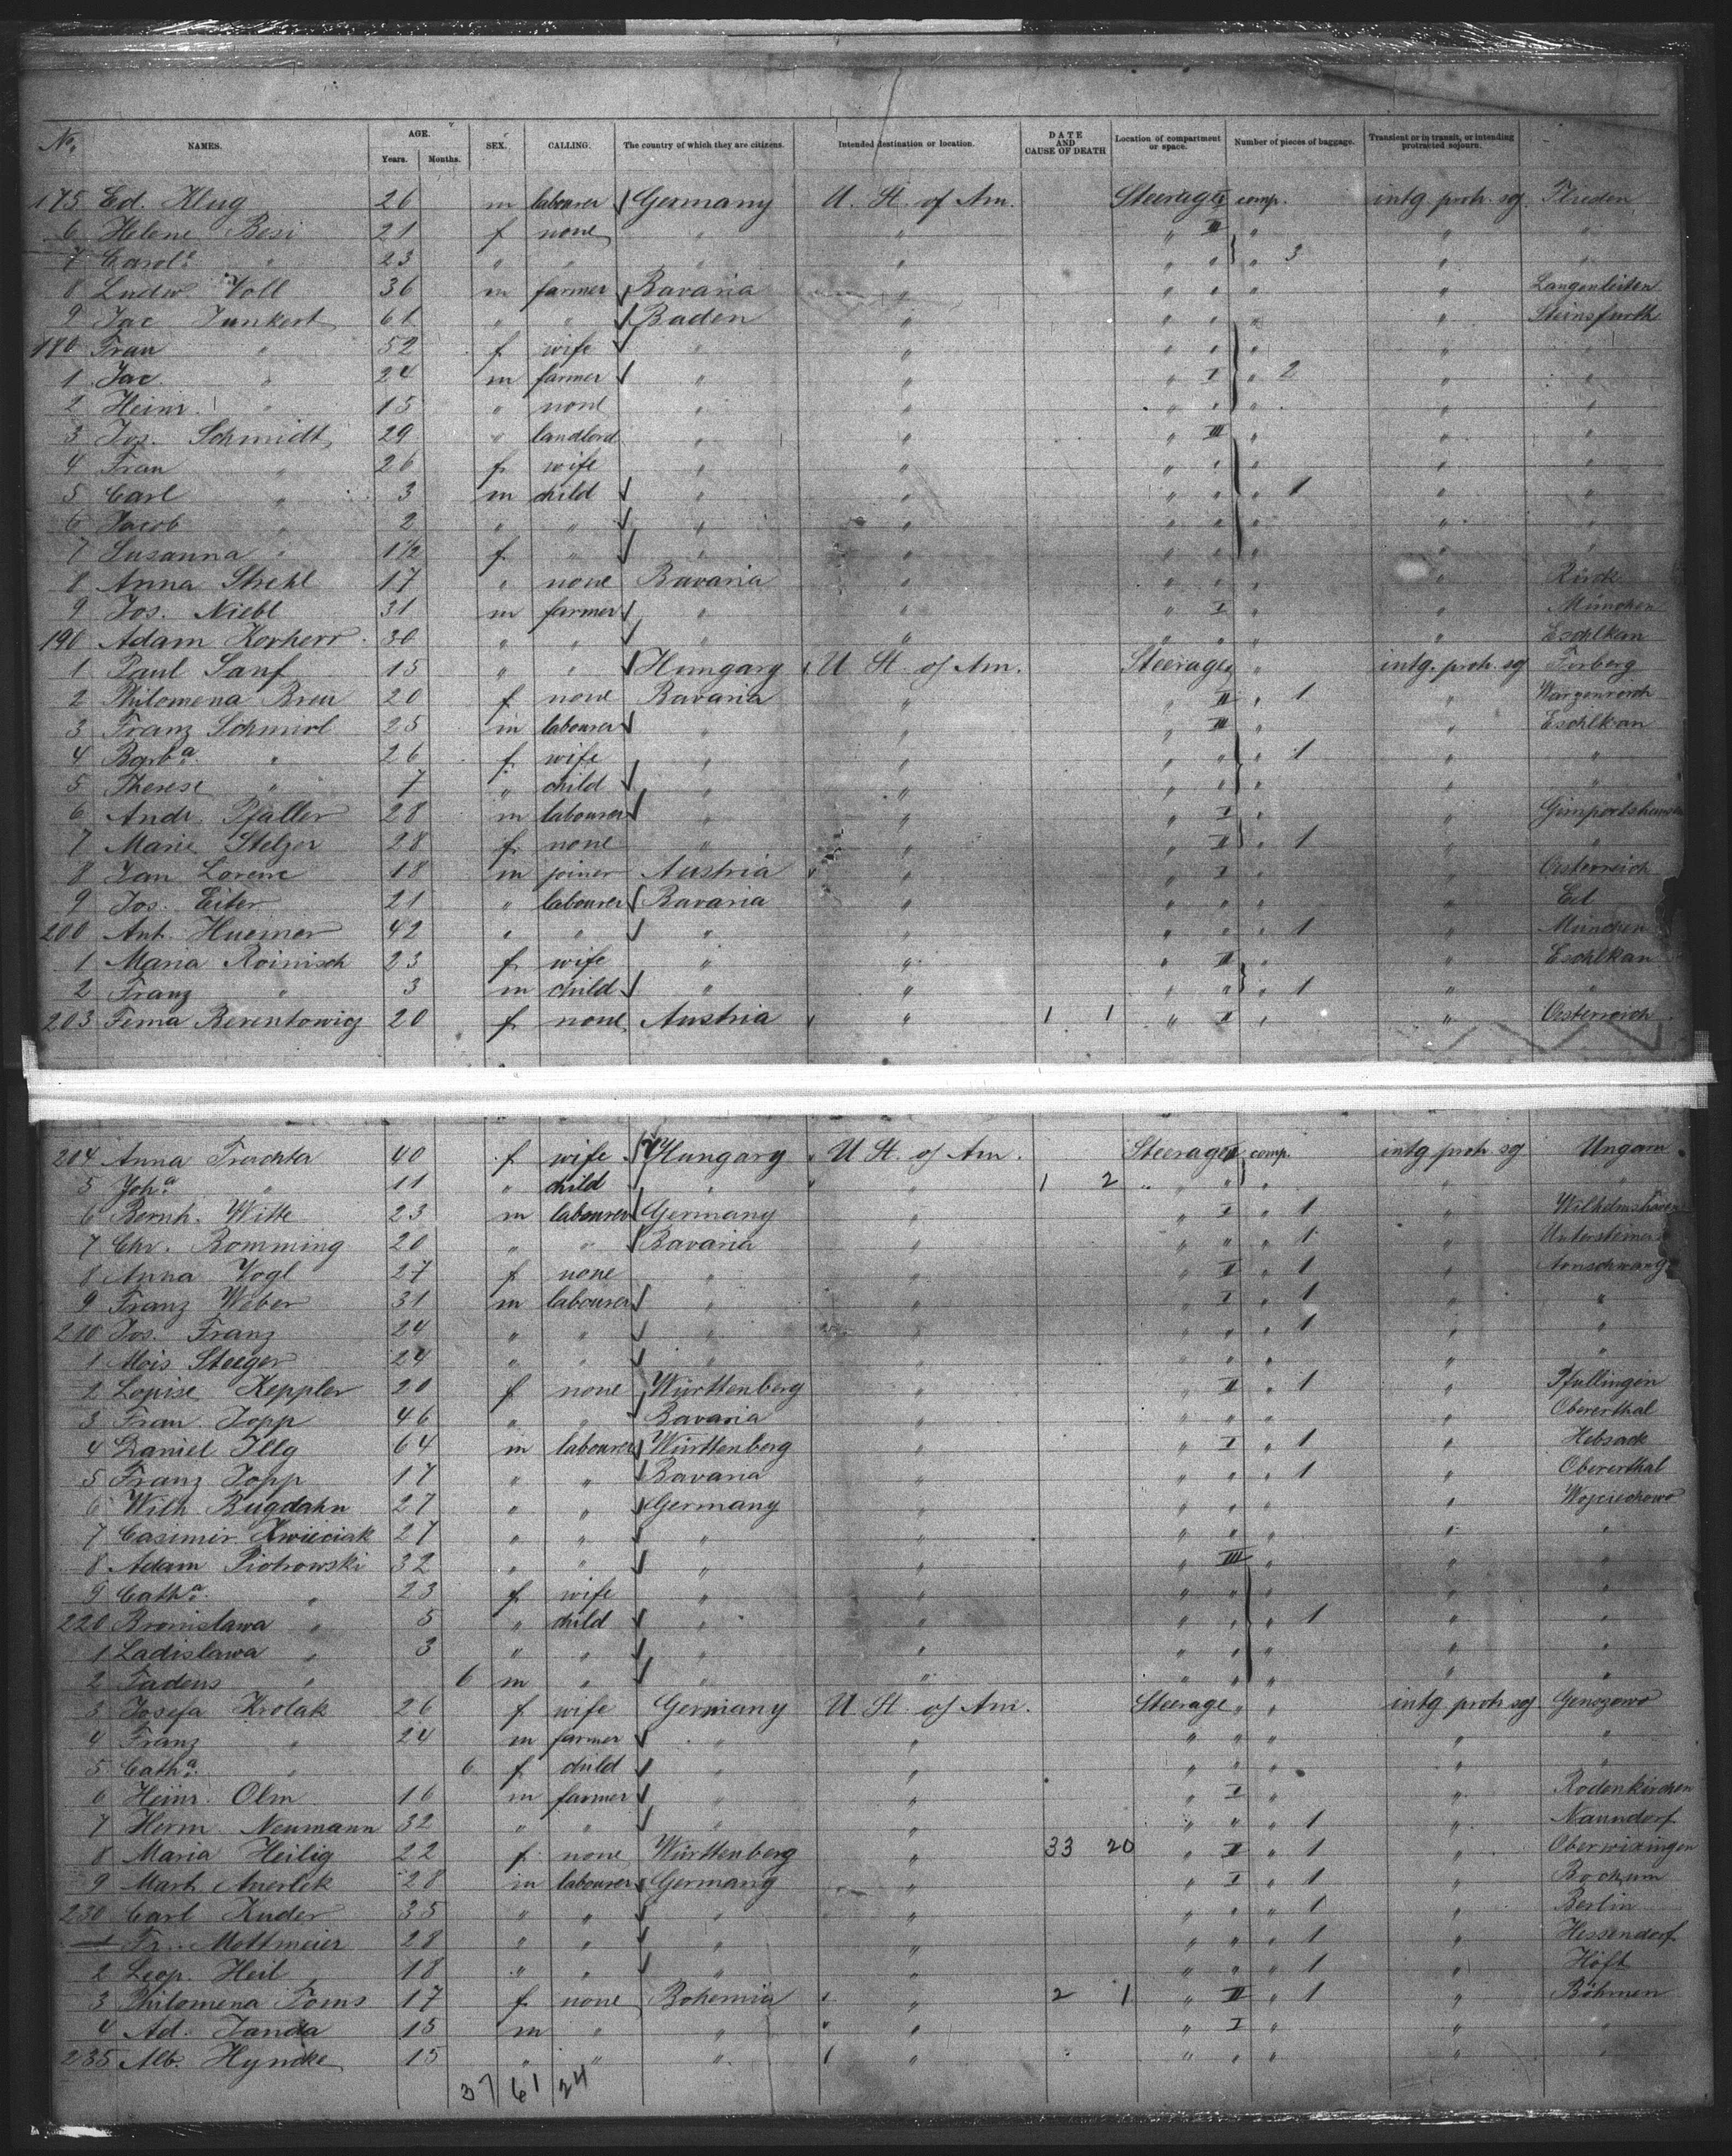 No. NAMES. AGE. Years. Months. SEX. CALLING. The country of which they are citizens. Intended destination or location. DATE AND CAUSE OF DEATH Location of compartment or space. Number of pieces of baggage. Transient or in transit, or intending protracted sojourn.
175 Ed. Klug 26 m labourer Germany U. St. of Am. Steerage I comp. intg. protr. soj.
6 Helene Besi 21 f none " " " II " " "
7 Carole " 23 " " " " " " " 3 " "
8 Ludw. Voll 36 m farmer Bavaria " " " " " Langenleiten
9 Jac. Junkert 61 " " Baden " " " " " Steinsfurth
180 Frau " 52 f wife " " " " " " "
1 Jac. " 24 m farmer " " " I " 2 " "
2 Heinr. " 15 " none " " " " " " "
3 Jos. Schmidt 29 " landlord " " " III " " "
4 Frau " 26 f wife " " " " " " "
5 Carl " 3 m child " " " " " 1 " "
6 Jacob " 2 " " " " " " " " "
7 Susanna " 1½ f " " " " " " " "
8 Anna Strehl 17 " none Bavaria " " " " "
9 Jos. Niebl 31 m farmer " " " I " " München
190 Adam Korherr 30 " " " " " " " " Eschlkam
1 Paul Sanf 15 " " Hungary U St. of Am. Steerage " " intg. protr. soj
2 Philomena Breu 20 f none Bavaria " " II " 1 "
3 Franz Schmirl 25 m labourer " " " III " " Eschlkam
4 Barba. " 26 f wife " " " " " 1 " "
5 Therese " 7 " child " " " " " " "
6 Andr. Pfaller 28 m labourer " " " I " "
7 Marie Stelzer 28 f none " " " II " 1 " "
8 Jan Lorenc 18 m joiner Austria " " I " " Oesterreich
9 Jos. Eiter 21 " labourer Bavaria " " " " "
200 Ant. Huemer 42 " " " " " " " 1 " München
1 Maria Roinisch 23 f wife " " " II " " Eschlkam
2 Franz " 3 m child " " " " " 1 " "
203 Fema Berentowicz 20 f none Austria " 1 1 " II " " Oesterreich
204 Anna Trachta 40 f wife Hungary U St. of Am. Steerage II comp. intg protr. soj Ungarn
5 Joha. " 11 " child " " 1 2 " " " " "
6 Bernh. Witte 23 m labourer Germany " " I " 1 " Wilhelmshaven
7 Chr. Romming 20 " " Bavaria " " " " 1 "
8 Anna Vogl 27 f none " " " I " 1 " Arnschwang
9 Franz Weber 31 m labourer " " " I " 1 " "
210 Jos. Franz 24 " " " " " " " 1 " "
1 Alois Steeger 24 " " " " " " " " "
2 Louise Keppler 20 f none Württenberg " " II " 1 " Pfullingen
3 Frau Jopp 46 " " Bavaria " " " " " Obererthal
4 Daniel Illg 64 m labourer Württenberg " " I " 1 " Hebsack
5 Franz Jopp 17 " " Bavaria " " " " 1 " Obererthal
6 Wilh Bugdahn 27 " " Germany " " " " " Wojciechowo
7 Casimir Kwieciak 27 " " " " " " " " "
8 Adam Piotrowski 32 " " " " " III " " "
9 Catha. " 23 f wife " " " " " " "
220 Bronislawa " 5 " child " " " " " 1 " "
1 Ladislawa " 3 " " " " " " " " "
2 Tadeus " 6 m " " " " " " " "
3 Josefa Krolak 26 f wife Germany U St. of Am. Steerage " " intg. protr. soj
4 Franz " 24 m farmer " " " " " " "
5 Catha. " 6 f child " " " " " " "
6 Heinr. Olm 16 m farmer " " " I " " Rodenkirchen
7 Herm. Neumann 32 " " " " " " " 1 " Naundorf
8 Maria Heilig 22 f none Württenberg " 33 20 " II " 1 "
9 Mart. Anerlek 28 m labourer Germany " " I " 1 " Bochum
230 Carl Kuder 35 " " " " " " " 1 " Berlin
1 Fr. Mottmeier 28 " " " " " " " 1 " Hessendorf
2 Leop. Heil 18 " " " " " " " 1 " Höft
3 Philomena Toms 17 f none Bohemia " 2 1 " II " 1 " Böhmen
4 Ad. Janda 15 m " " " " I " " "
235 Alb. Hyncke 15 " " " " " " " " "
37 61 24